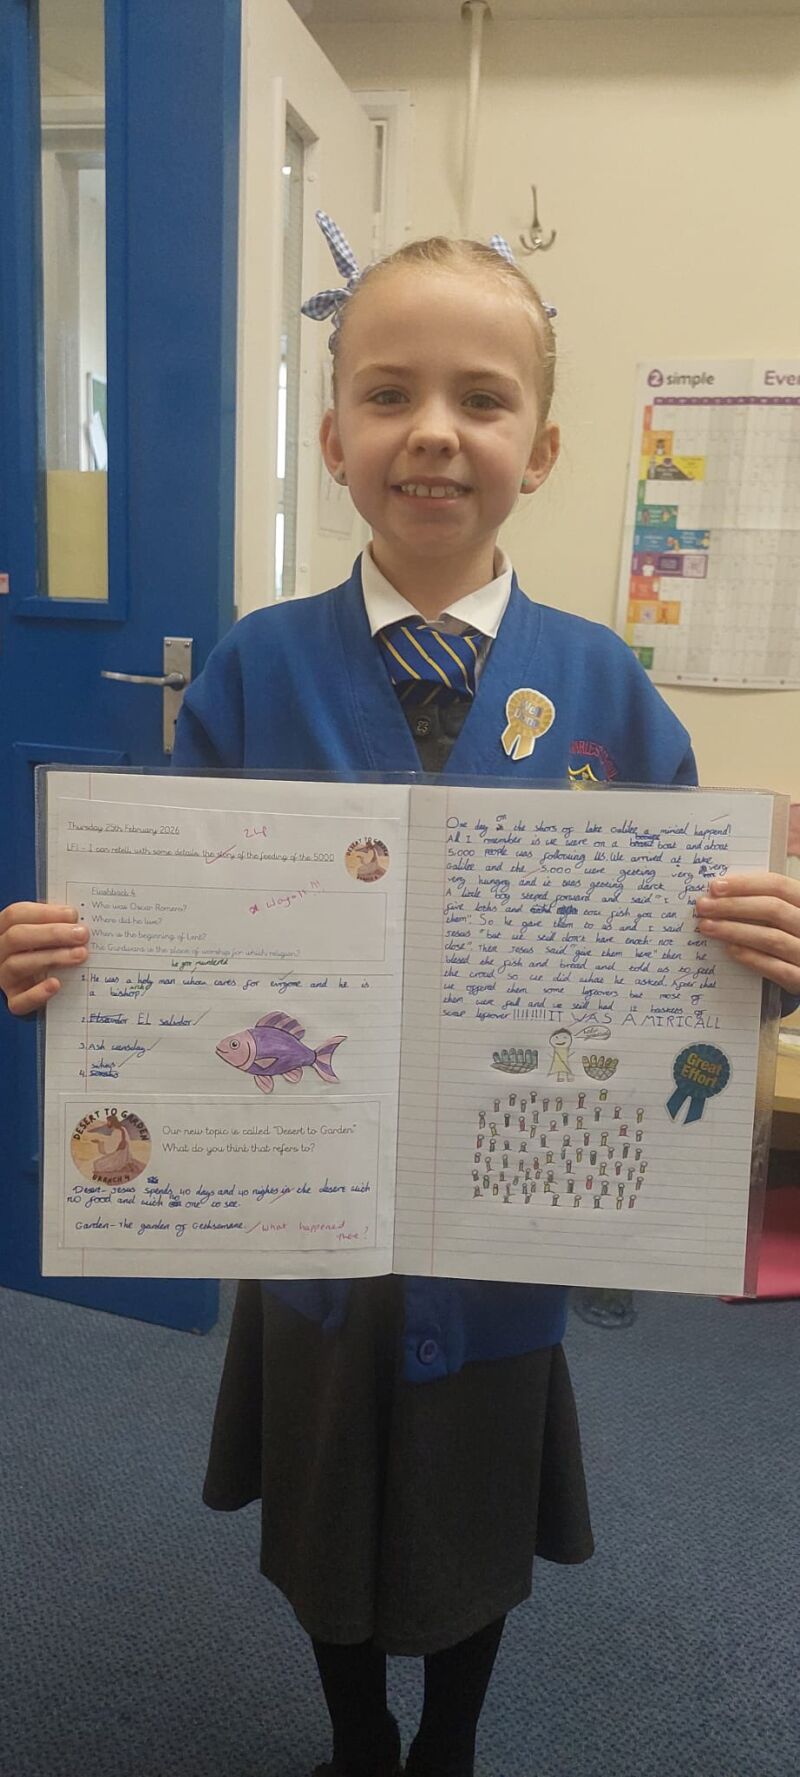 2 simple Ever
Well Done
Thursday 25th February 2026
LF1 - I can retell with some detail the story of the feeding of the 5000
DESERT TO GARDEN
BRANCH 4
Flashback 4
• Who was Oscar Romero?
• Where did he live?
When is the beginning of Lent?
The Gurdwara is the place of worship for which religion?
he got murdered
1. He was a holy man whow cares for and he is
a arch bishop.
2. EL salvador
3. Ash wensday
4.
DESERT TO GARDEN
BRANCH 4
Our new topic is called "Desert to Garden"
What do you think that refers to?
Desert- Jesus spends 40 days and 40 nights in the desert with
no food and with no one to see.
Garden- The garden of Gethsemane. what happened
there?
One day on the shors of lake Galilee a mirical happend!
All I remember is we were on a boat and about
5,000 people was following us. We arrived at lake
Galilee and the 5,000 were getting very very
very hungry and it was getting darck fast!
A little boy steped forward and said "I ha
five loths and tow fish you can h
them". So he gave them to us and I said
Jesus "but we still don't have enoch not even
close". Then Jesus said "give them here" then he
blesed the fish and bread and told us to feed
the crowd so we did what he asked. After that
we offered them some leftovers but most of
them were full and we still had 12 baskets of
scrap leftover!!!!!!!!! IT WAS A MIRICALL
Great
Effort